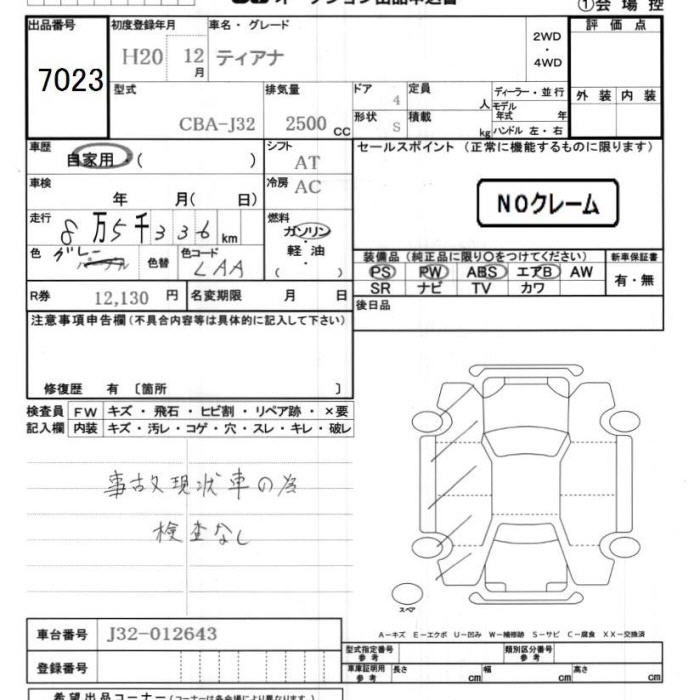 オークション出品申込書
①会場控
出品番号 初度登録年月 車名・グレード 評価点
7023 H20 12月 ティアナ 2WD・4WD
型式 排気量 ドア 定員 ディーラー・並行 外装 内装
CBA-J32 2500cc 4 人 モデル年式 年
形状 積載
S kg ハンドル 左・右
車歴 自家用 ( ) シフト AT セールスポイント (正常に機能するものに限ります)
車検 年 月( 日) 冷房 AC
NOクレーム
走行 8万5千336km 燃料 ガソリン・軽油 ( )
色 グレー 色替 色コード LAA
装備品 (純正品に限り○をつけてください) 新車保証書
PS PW ABS エアB AW 有・無
SR ナビ TV カワ
R券 12,130円 名変期限 月 日
後日品
注意事項申告欄 (不具合内容等は具体的に記入して下さい)
修復歴 有 〔箇所 〕
検査員 FW キズ・飛石・ヒビ割・リペア跡・×要
記入欄 内装 キズ・汚レ・コゲ・穴・スレ・キレ・破レ
事故現状車の為
検査なし
スペア
A-キズ E-エクボ U-凹み W-補修跡 S-サビ C-腐食 XX-交換済
車台番号 J32-012643
型式指定番号 参考 類別区分番号 参考
登録番号
車庫証明用 参考 長さ cm 幅 cm 高さ cm
希望出品コーナー (コーナーは各会場により異なります。)